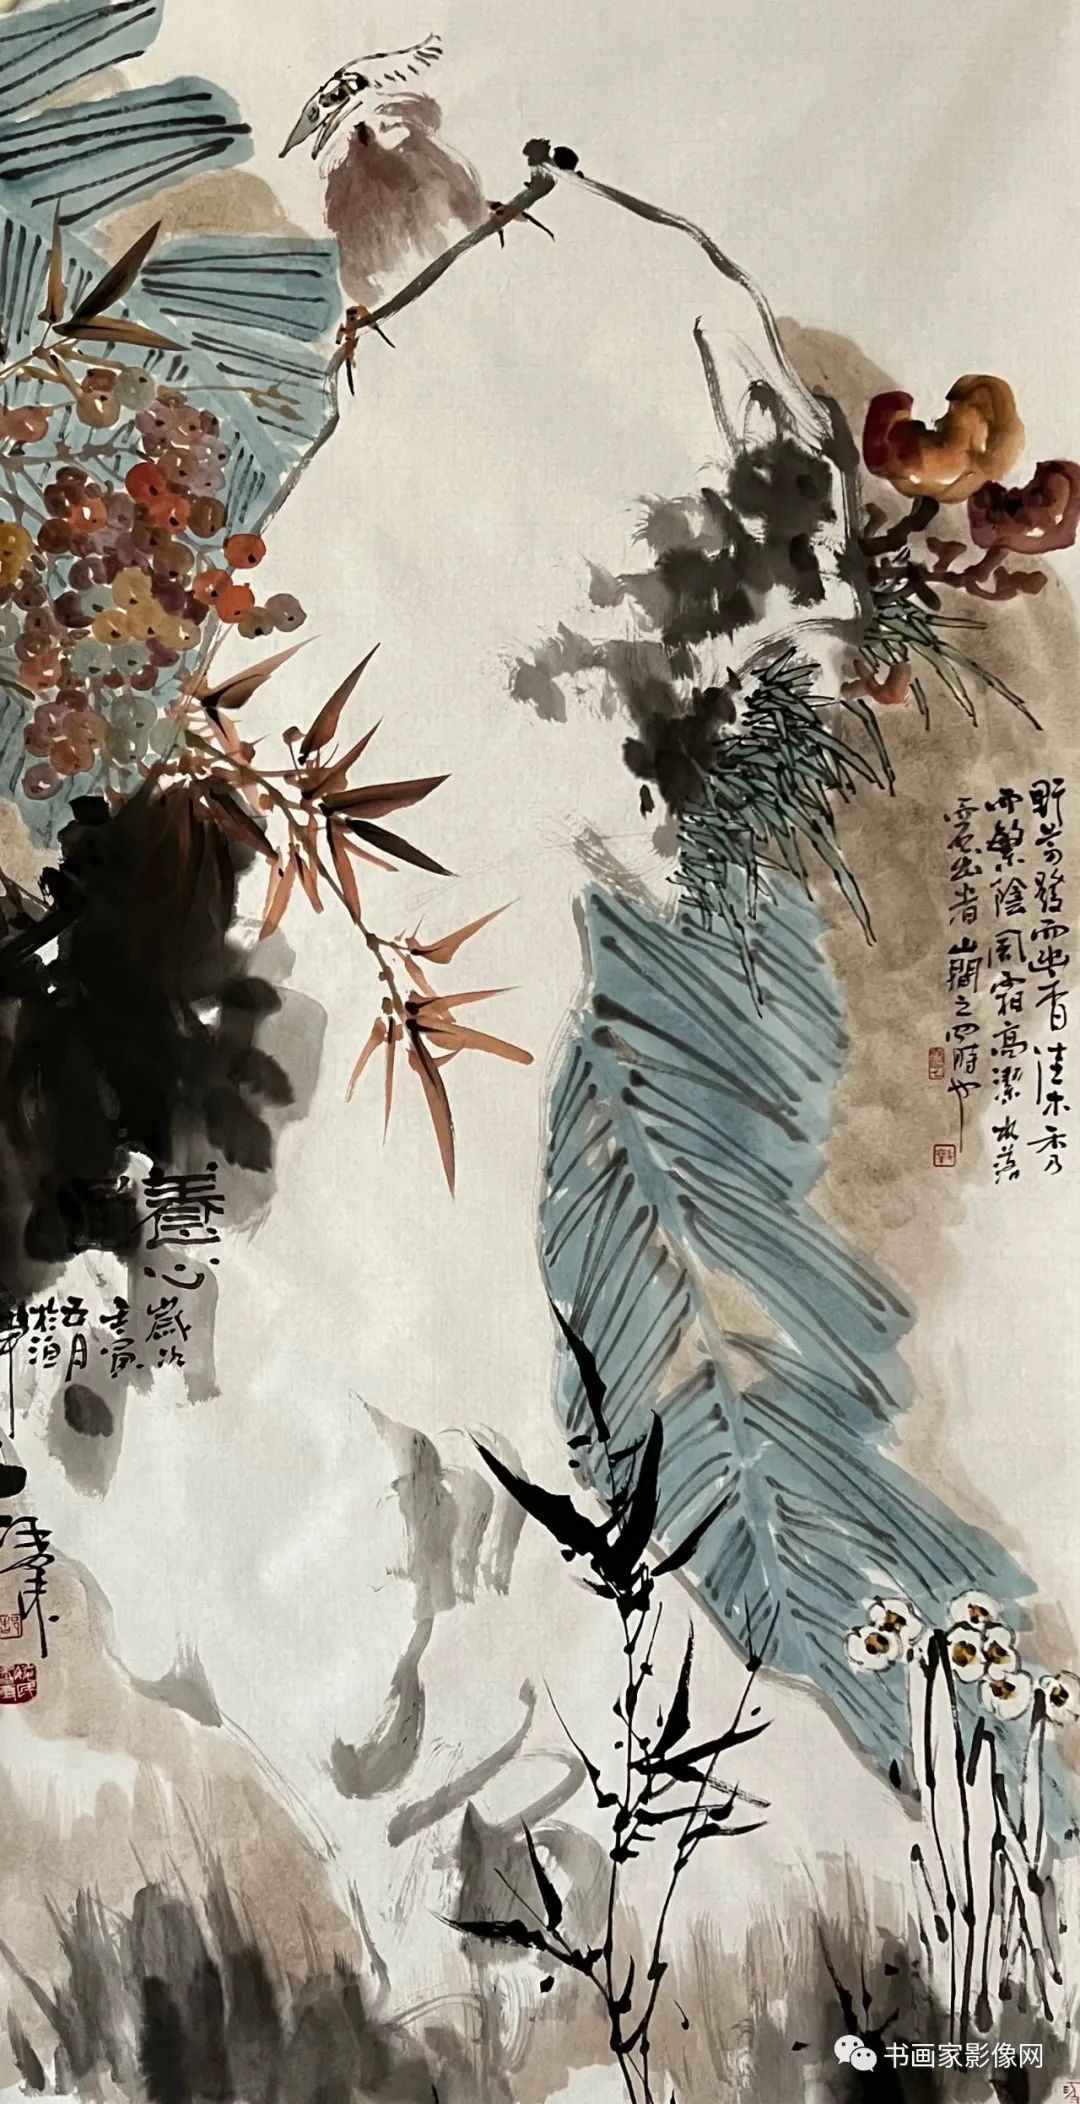 野芳發而幽香佳木秀
而繁陰風霜高潔水落
而石出者山間之四時也
養心歲次
壬寅
五月
於漁
书画家影像网